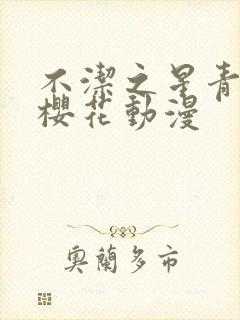 不潔之星青
櫻花動漫
奧蘭多市